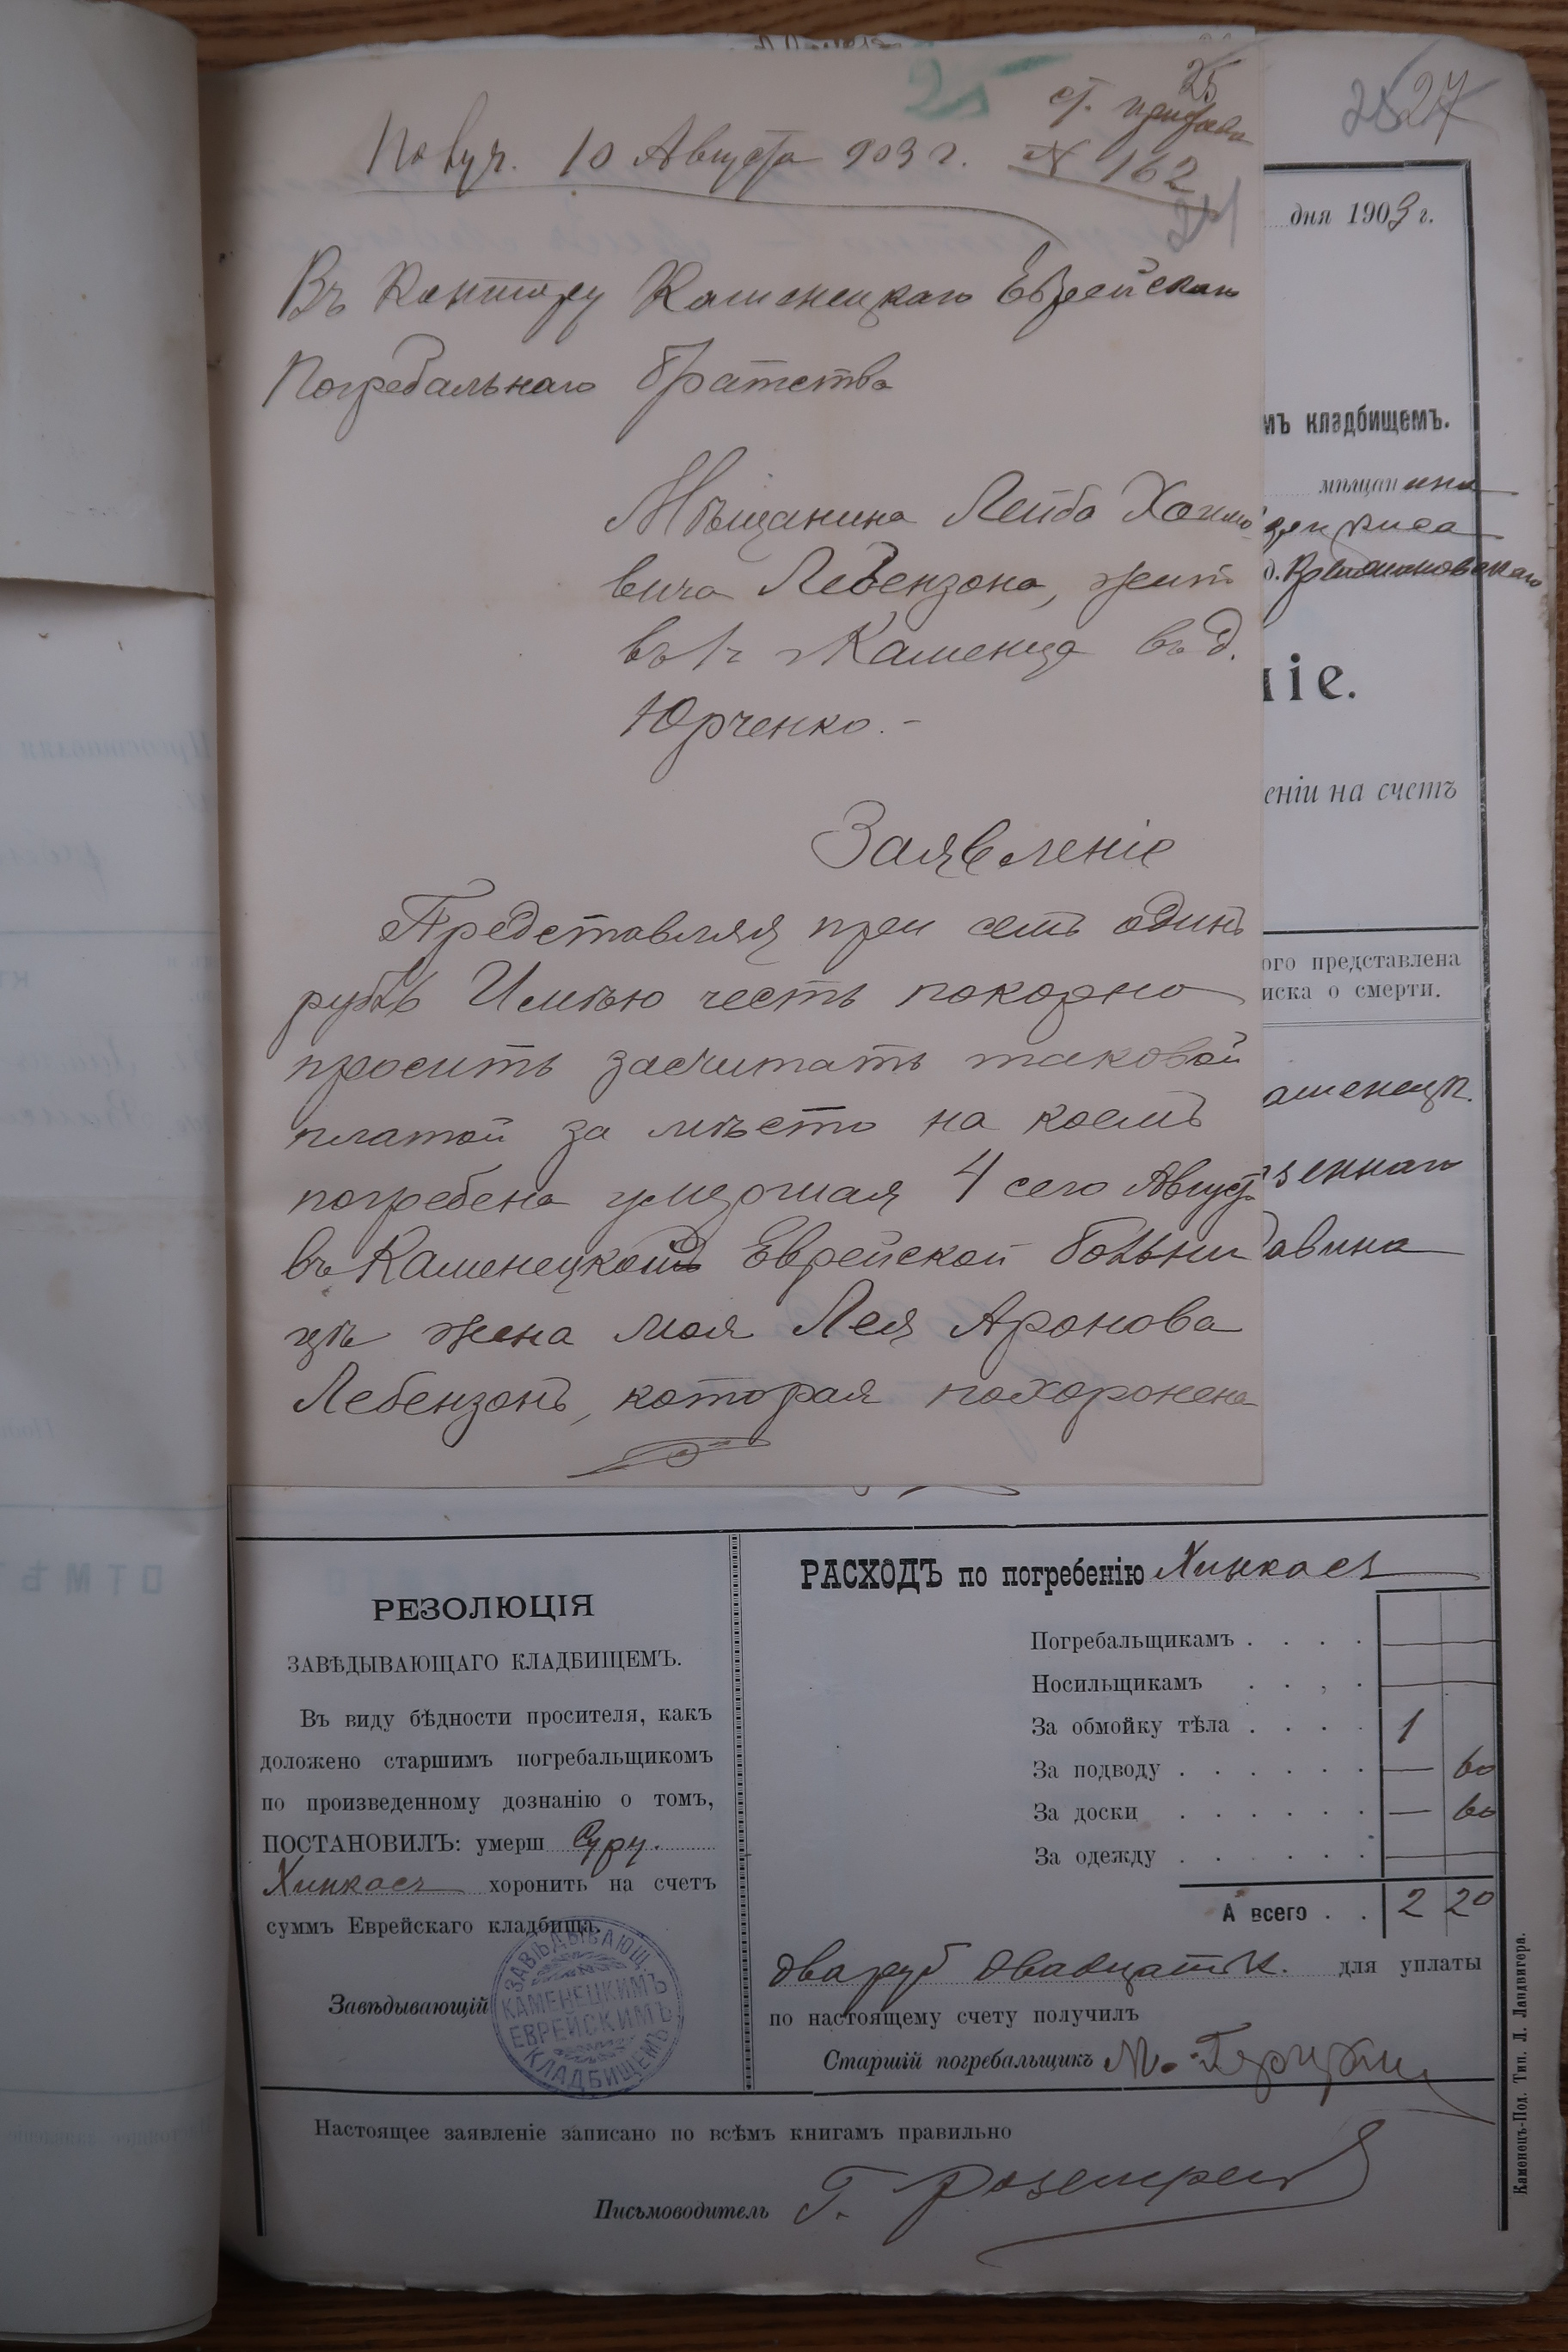 25
25
2527
ст. приѣзда
Получ. 10 Августа 903 г. № 162
24
Въ Контору Каменецкаго Еврейскаго
Погребальнаго братства
Мѣщанина Лейба Хаимо
вича Лебензона, жит.
въ г. Каменце въ д.
Юрченко. –
Заявленіе
Представляя при семъ одинъ
рубль Имѣю честь покорно
просить засчитать таковой
платой за мѣсто на коемъ
погребена умершая 4 сего Август
въ Каменецкой Еврейской больни
цѣ жена моя Лея Аронова
Лебензонъ, которая похоронена
дня 1903 г.
мъ кладбищемъ.
мѣщанина
д.
ніе.
еніи на счетъ
ого представлена
иска о смерти.
аменецк.
зеннаго
РЕЗОЛЮЦІЯ
ЗАВѢДЫВАЮЩАГО КЛАДБИЩЕМЪ.
Въ виду бѣдности просителя, какъ
доложено старшимъ погребальщикомъ
по произведенному дознанію о томъ,
ПОСТАНОВИЛЪ: умерш Суру.
Хинкаса хоронить на счетъ
суммъ Еврейскаго кладбища.
Завѣдывающій
ЗАВѢДЫВАЮЩ.
КАМЕНЕЦКИМЪ
ЕВРЕЙСКИМЪ
КЛАДБИЩЕМЪ
РАСХОДЪ по погребенію Хинкаса
Погребальщикамъ . . . . —
Носильщикамъ . . . . —
За обмойку тѣла . . . . 1
За подводу . . . . . . — 60
За доски . . . . . . — 60
За одежду . . . . . . —
А всего . . 2 20
два руб двадцать к. для уплаты
по настоящему счету получилъ
Старшій погребальщикъ М.
Настоящее заявленіе записано по всѣмъ книгамъ правильно
Письмоводитель Г.
Каменецъ-Под. Тип. Л. Ландвигера.